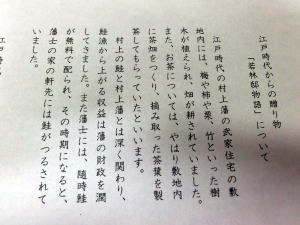 江戸時代からの贈り物
「若林邸物語」について
江戸時代の村上藩の武家住宅の敷
地内には、梅や柿や栗、竹といった樹
木が植えられ、畑が耕されていました。
また、お茶については、やはり敷地内
に茶畑をつくり、摘み取った茶葉を製
茶してもらっていたといいます。
村上の鮭と村上藩とは深く関わり、
鮭漁から上がる収益は藩の財政を潤
してきました。また藩士には、随時鮭
が無料で配られ、その時期になると、
藩士の家の軒先には鮭がつるされて
いました。